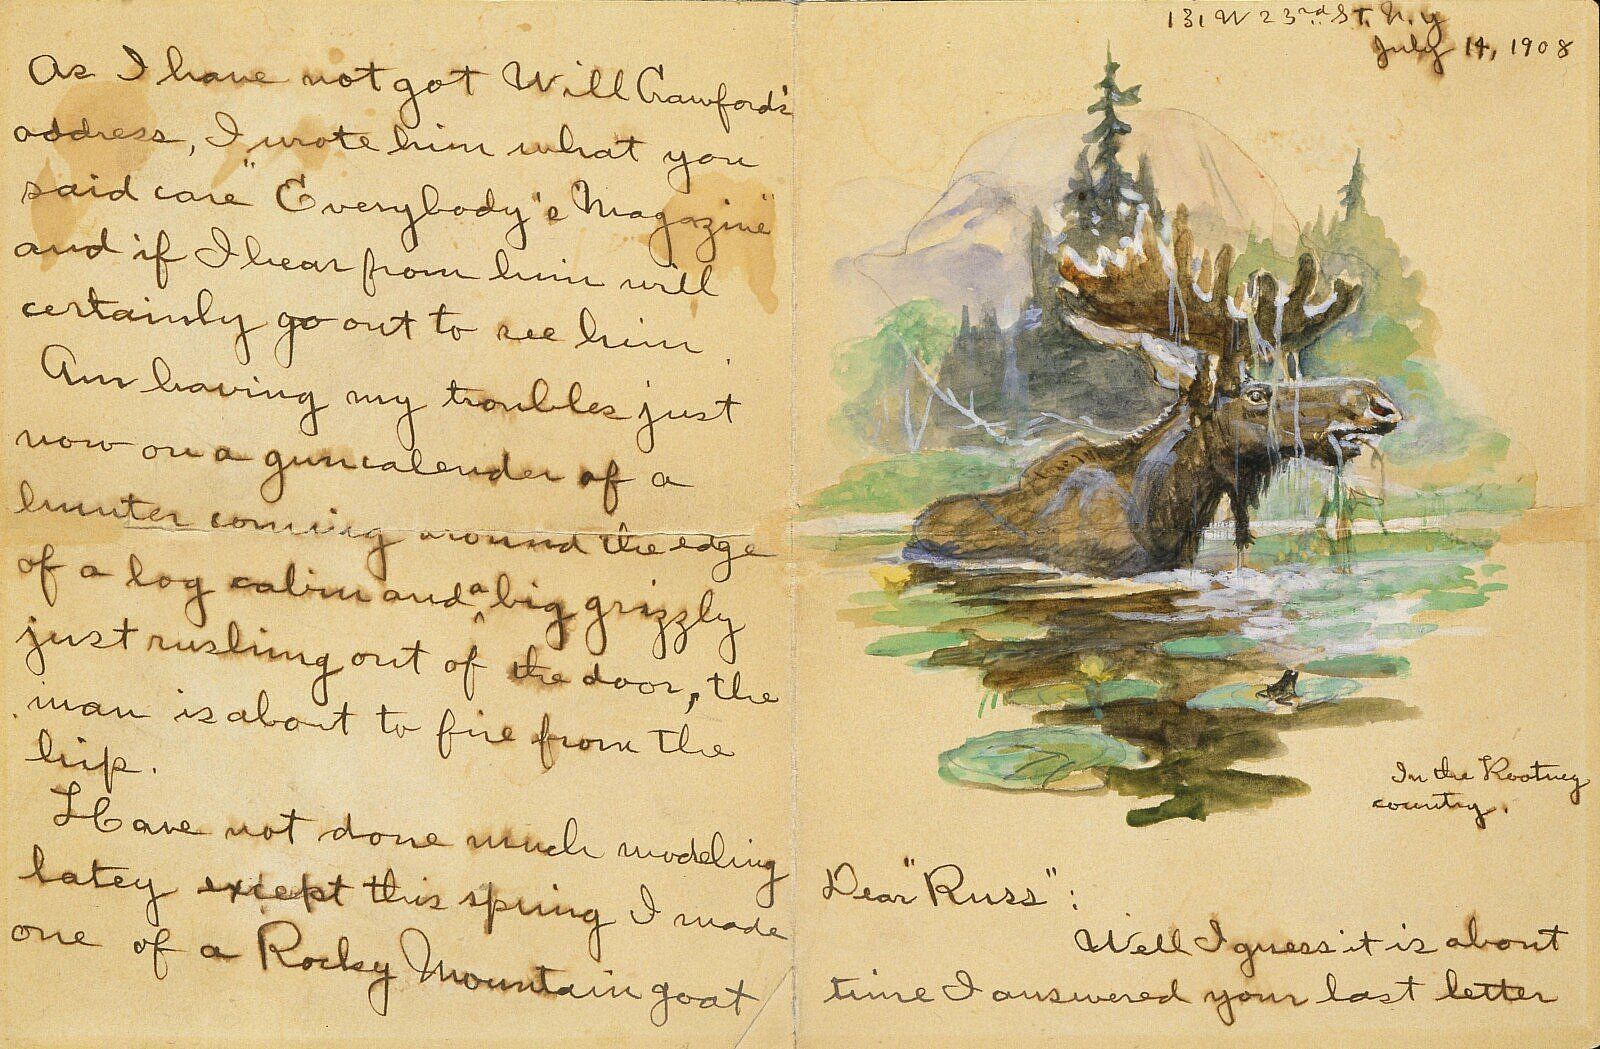 131 W 23rd St. N.y
July 14, 1908
In the Kootney
country.
Dear "Russ":
Well I guess it is about
time I answered your last letter
As I have not got Will Crawford's
address, I wrote him what you
said care "Everybody's Magazine"
and if I hear from him will
certainly go out to see him.
Am having my troubles just
now on a gun calender of a
hunter coming around the edge
of a log cabin and a big grizzly
just rushing out of the door, the
man is about to fire from the
hip.
Have not done much modeling
latey except this spring I made
one of a Rocky Mountain goat